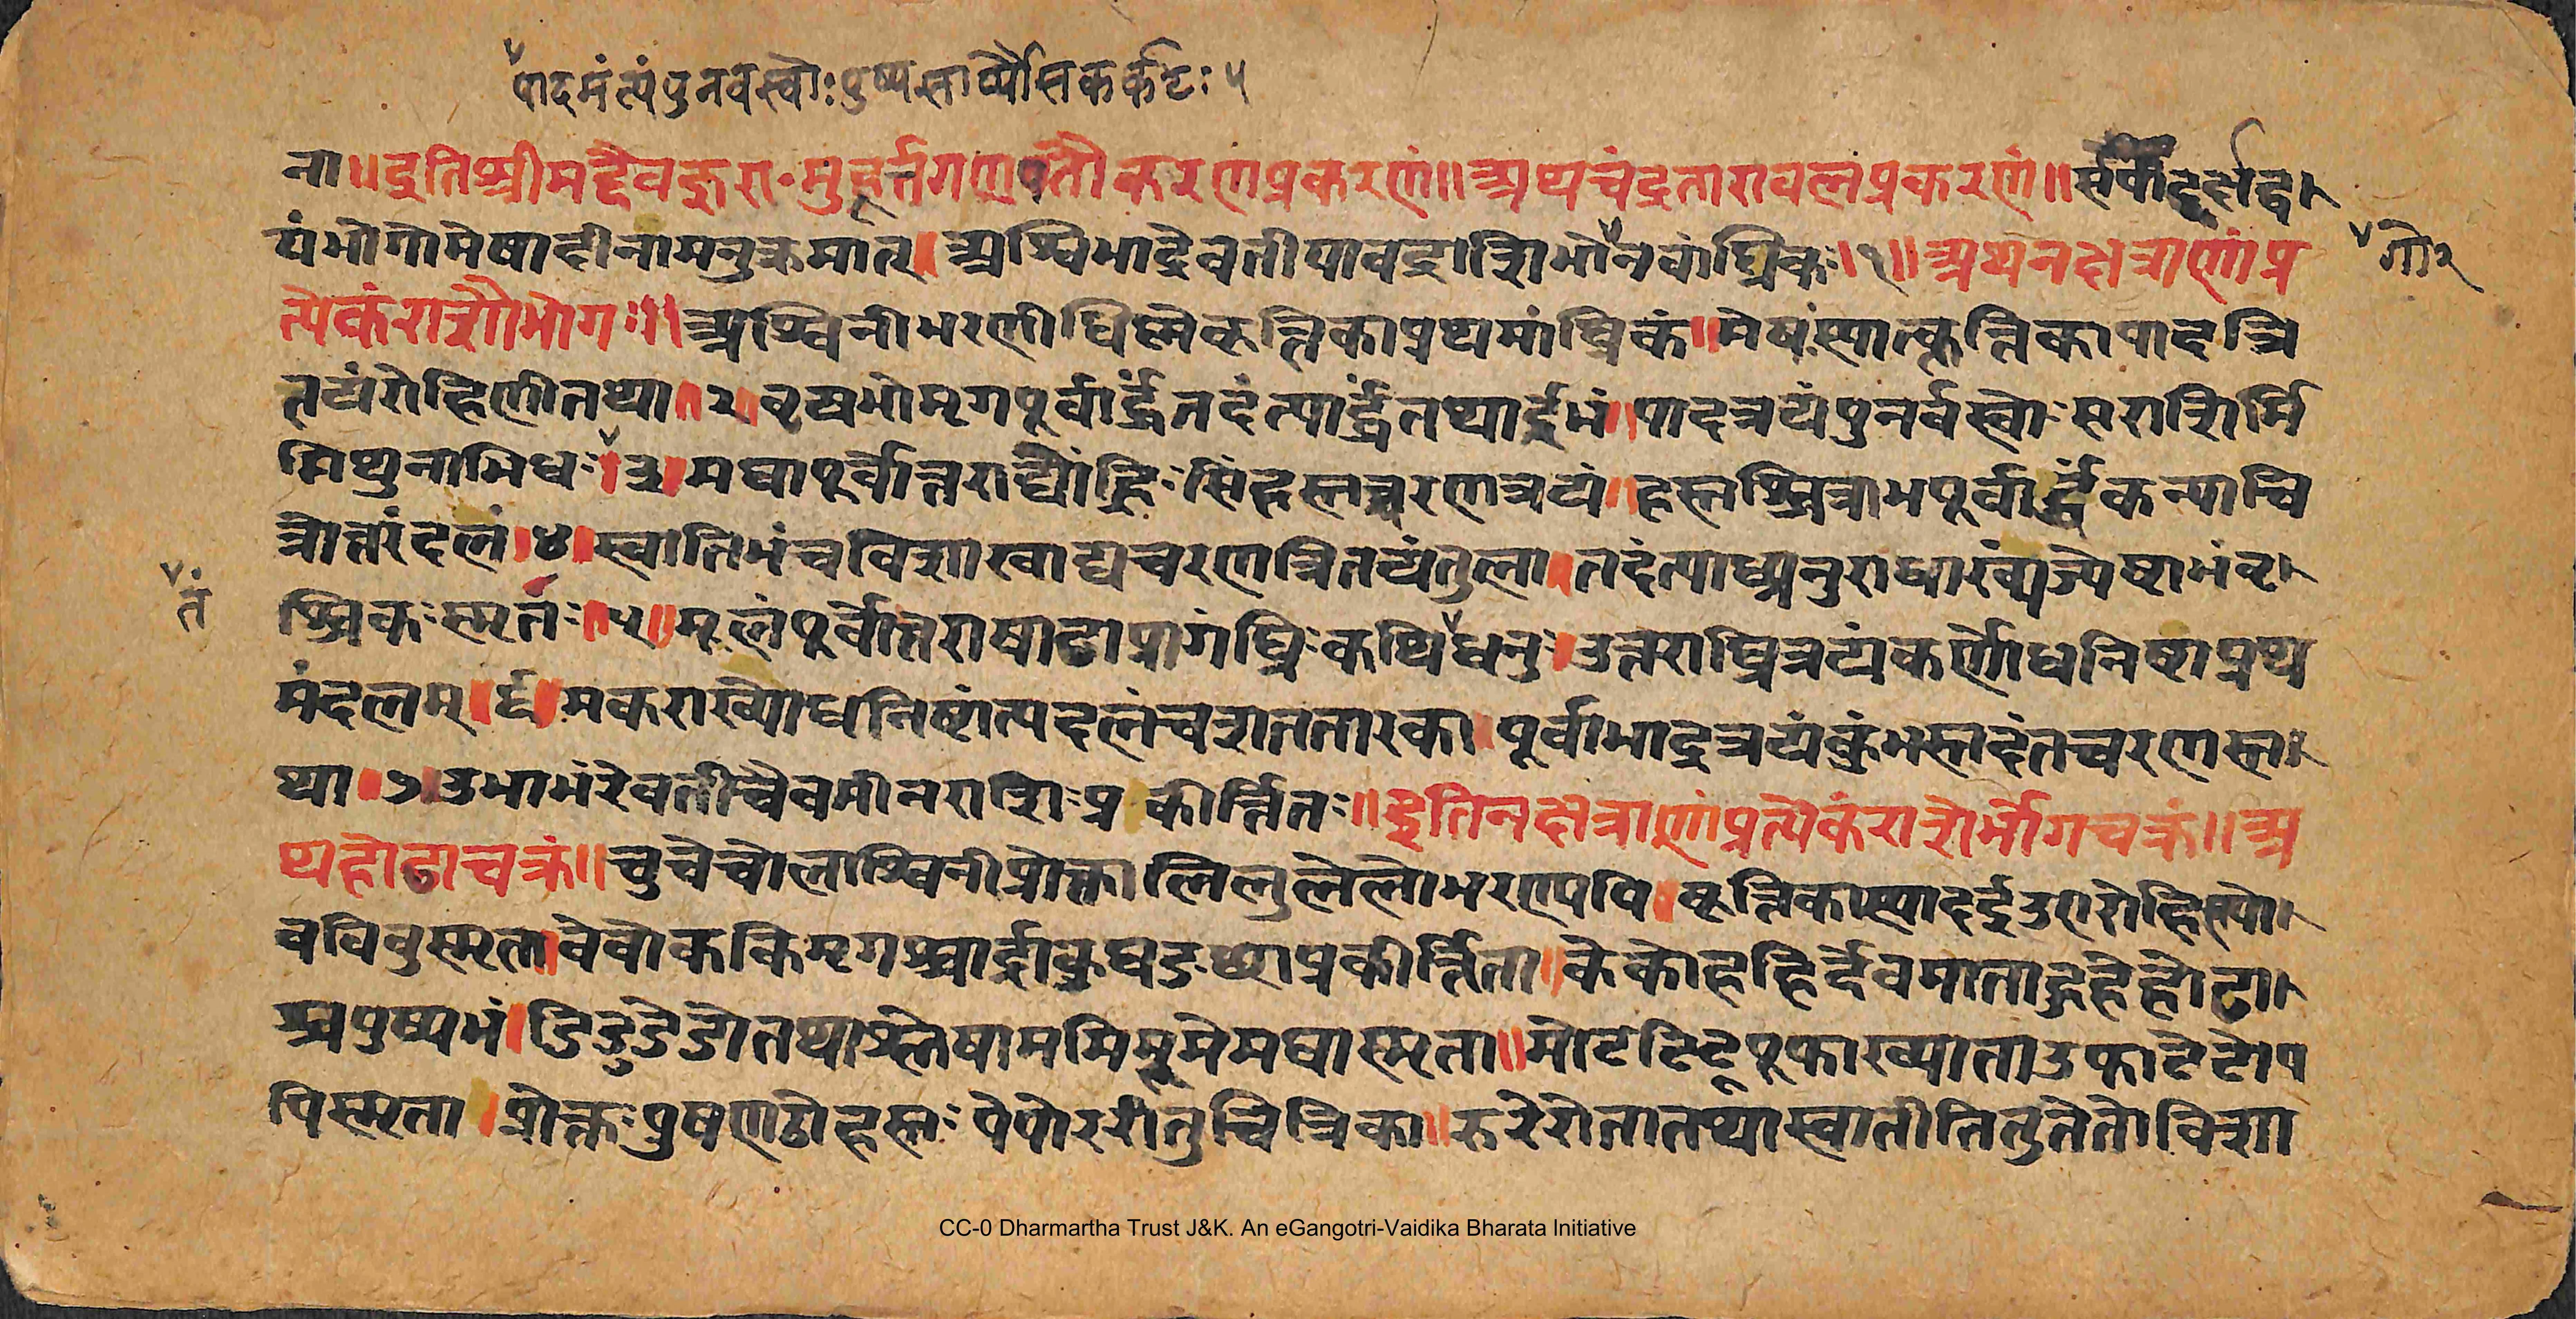 पादमंत्यंपुनवस्वोः पुष्यसार्प्पैसिकर्कटः ५
ना॥इतिश्रीमद्दैवकुरा॰मुहूर्त्तगणपतौकरणप्रकरणं॥अथचंद्रताराबलप्रकरणं॥
यंभोगोमेषादीनामनुक्रमात्।अश्विभाद्रेवतीयावद्राशिभोनवांघ्रिकः।१॥अथनक्षत्राणांप्र
गोर
त्येकंराशौभोगः॥अश्विनीभरणीधिष्ण्येकृत्तिकाप्रथमांघ्रिकं॥मेषःस्यात्कृत्तिकापादत्रि
तयंरोहिणीतथा।२।वृषभोमृगपूर्वार्द्धंतदंत्यार्द्धंतथार्द्रभं॥पादत्रयंपुनर्वस्वोःसराशिर्मि
मिथुनाभिधः।३।मघापूर्वोत्तराद्यांह्रिःसिंहस्तच्चरणत्रयं॥हस्तश्चित्राभपूर्वार्द्धंकन्याचि
त्रोत्तरंदलं।४।स्वातिभंचविशाखाद्यचरणत्रितयंतुला।तदंत्याघ्र्यनुराधाख्यज्येष्टाभंवृ।
तं
श्चिकःस्मर्तः।५॥मूलंपूर्वोतराषाढाप्रागंघ्रिःकथिधनुः।उत्तराघ्रित्रयंकर्णोधनिष्टाप्रथ
मंदलम्।६।मकराख्योधनिष्टांत्यदलंचशततारका।पूर्वाभाद्रत्रयंकुंभस्तदंतचरणस्त।
था।७।उभाभंरेवतीचैवमीनराशिःप्रकीर्त्तितः॥इतिनक्षत्राणांप्रत्येकंराशेर्भोगचक्रं॥अ
थहोढाचक्रं॥चुचेचोलाश्विनीप्रोक्तालिलुलेलोभरण्यपि।कृत्तिकास्यादईउएरोहिण्यो।
वविवुस्मृता।वेवोककिमृगश्चार्द्राकुघङछाप्रकीर्त्तिता।केकोहहिर्देवमाताहुहेहोढा।
श्चपुष्यभं।डिडुडेडोतथाश्लेषाममिमूमेमघास्मृता॥मोटटिटूपूफाख्याताउफाटेटोप
पिस्मृता।प्रोक्तःपुषणठोहस्तःपेपोररीतुचित्रिका॥रुरेरोतातथास्वातीतितुतेतोविशा
CC-0 Dharmartha Trust J&K. An eGangotri-Vaidika Bharata Initiative